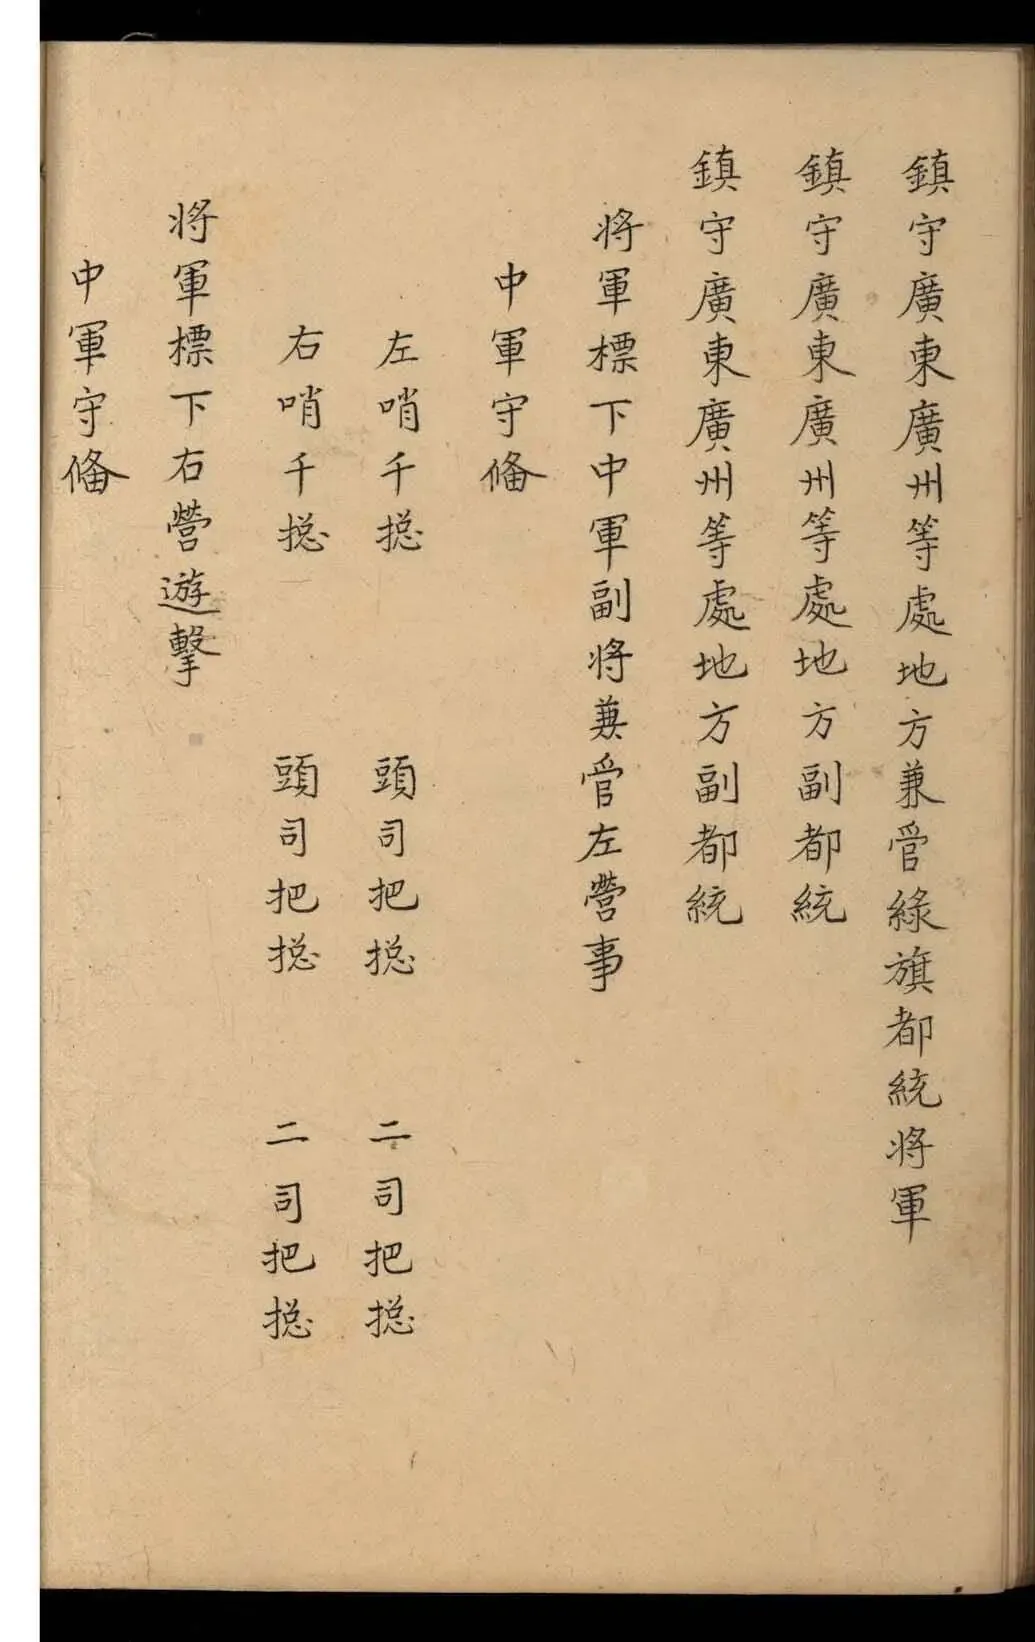 鎮守廣東廣州等處地方兼管綠旗都統將軍
鎮守廣東廣州等處地方副都統
鎮守廣東廣州等處地方副都統
將軍標下中軍副將兼管左營事
中軍守俻
左哨千捴 頭司把捴 二司把捴
右哨千捴 頭司把捴 二司把捴
將軍標下右營遊擊
中軍守俻